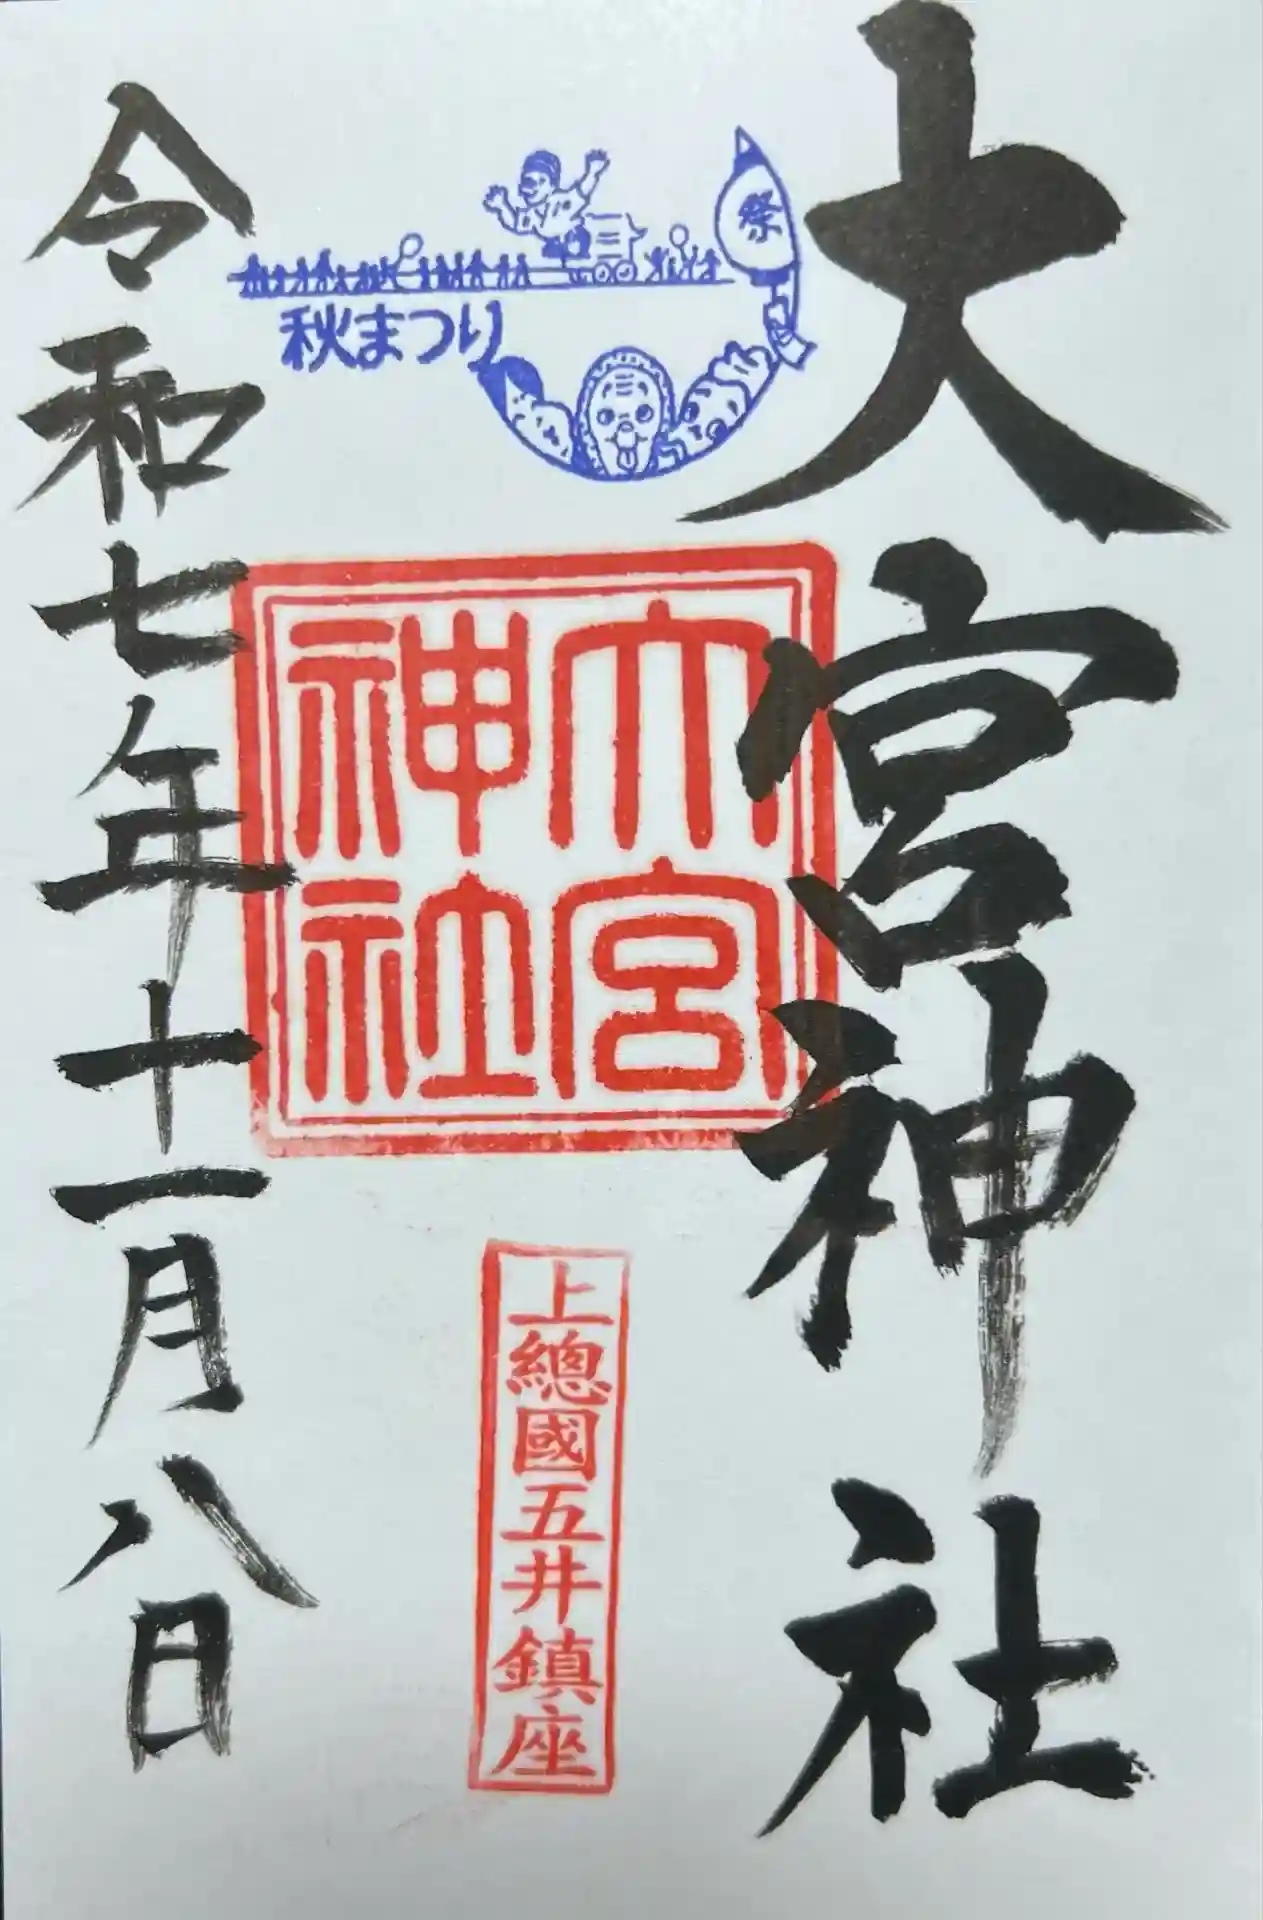 大宮神社
祭
秋まつり
大宮
神社
上總國五井鎮座
令和七年十一月八日